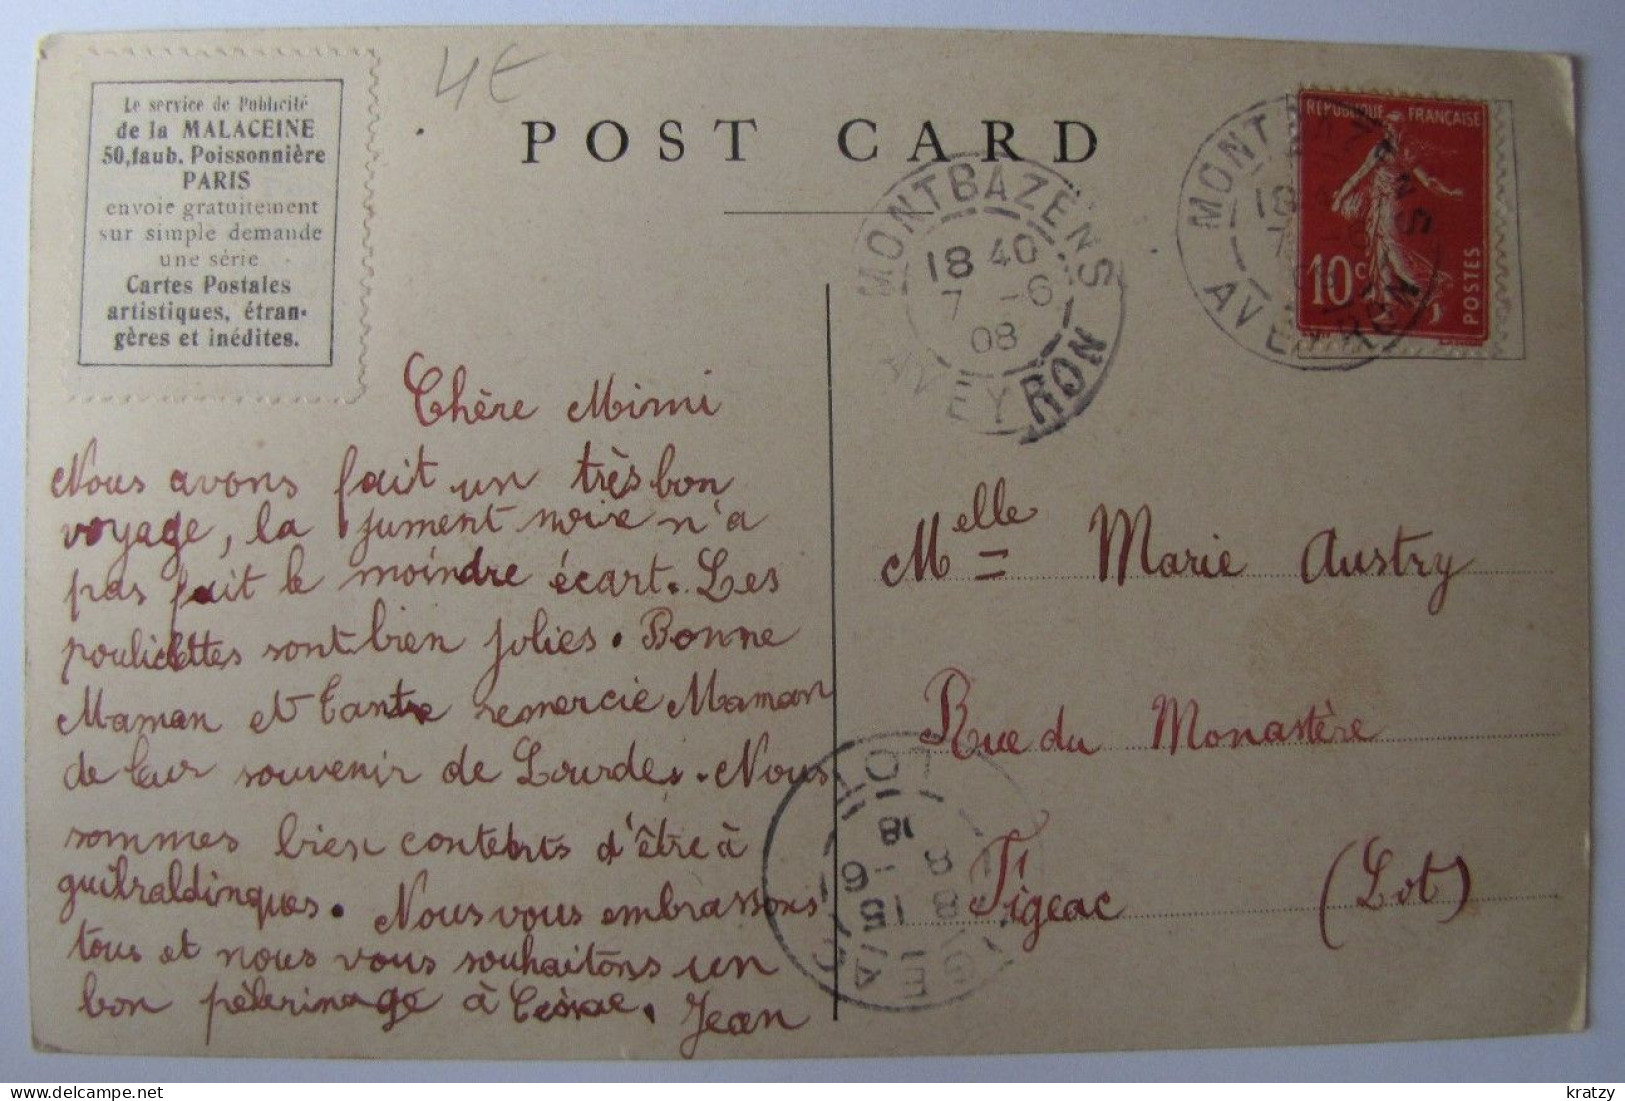 Le service de Publicité
de la MALACEINE
50, faub. Poissonnière
PARIS
envoie gratuitement
sur simple demande
une série
Cartes Postales
artistiques, étran-
gères et inédites.
4€
POST CARD
MONTBAZENS
18 40
7 -6
08
AVEYRON
MONTBAZENS
18
7
AVEYRON
RÉPUBLIQUE FRANÇAISE
10c
POSTES
Chère Mimi
Nous avons fait un très bon
voyage, la jument noire n'a
pas fait le moindre écart. Les
poulichettes sont bien jolies. Bonne
Maman et tante remercie Maman
de leur souvenir de Lourdes. Nous
sommes bien contents d'être à
guilraldinques. Nous vous embrassons
tous et nous vous souhaitons un
bon pèlerinage à Ceinac. Jean
Melle Marie Austry
Rue du Monastère
Figeac (Lot)
FIGEAC
LOT
kratzy